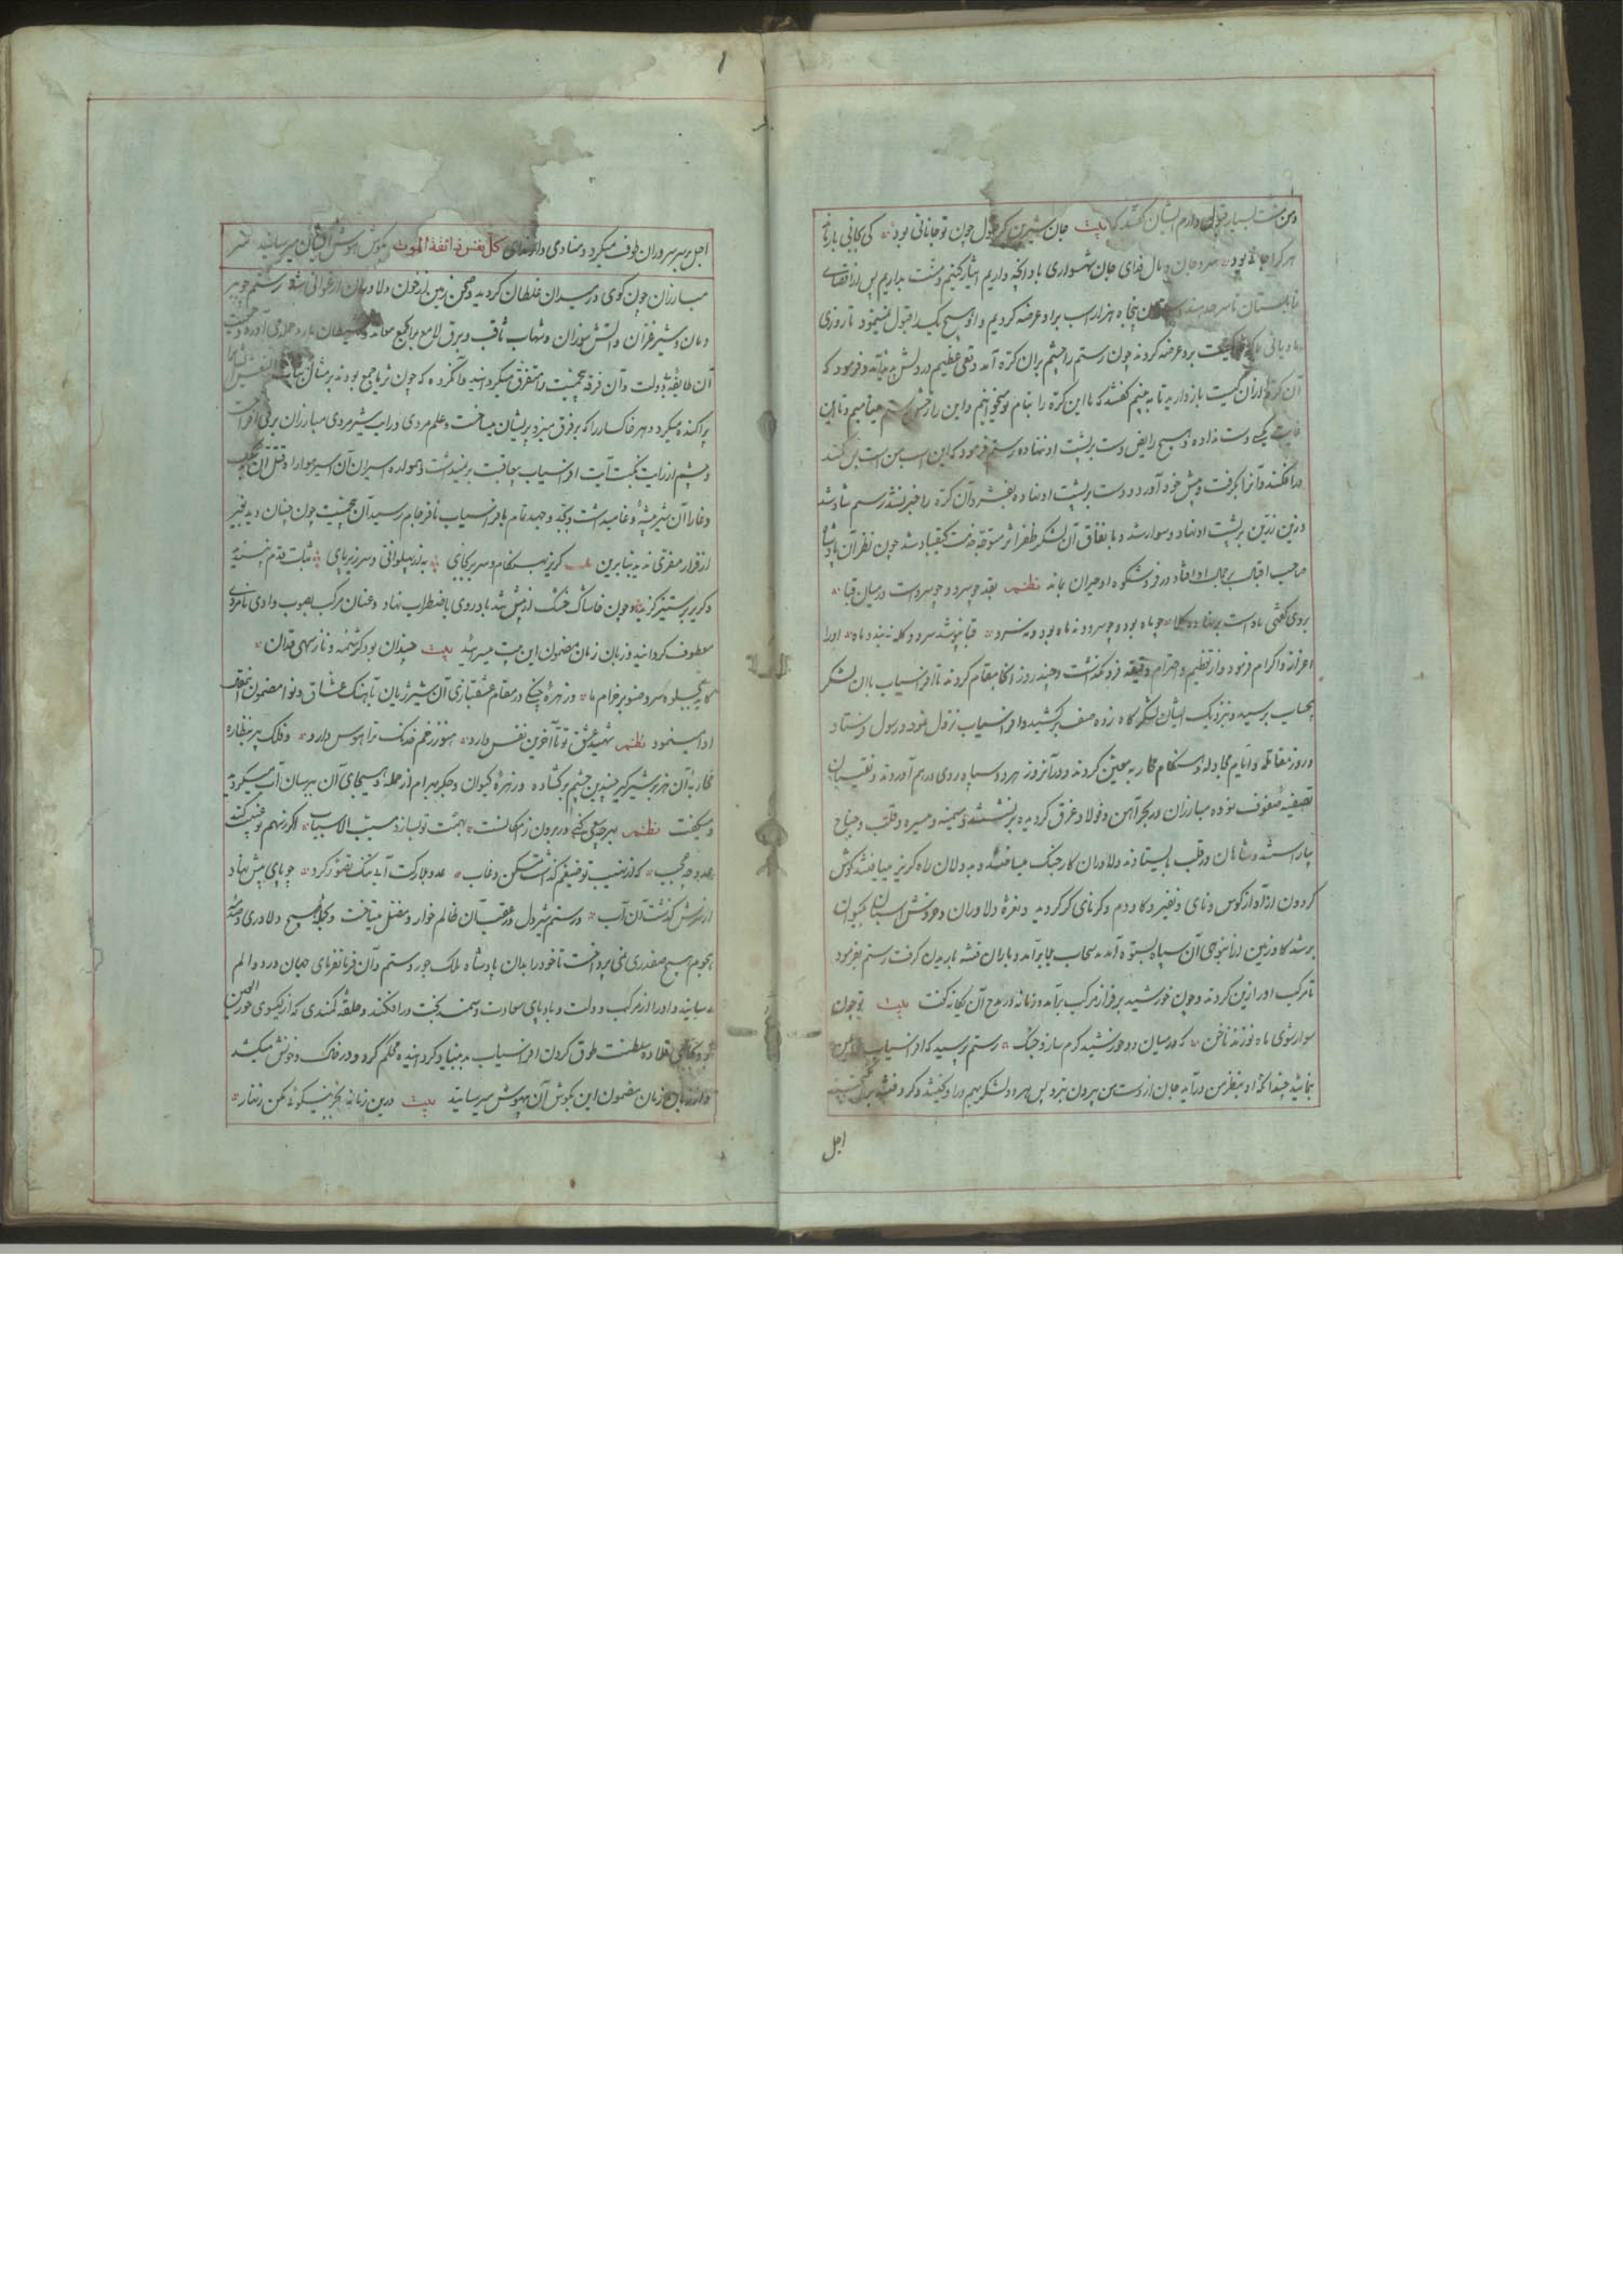 ومن منت بسیار قبول دارم ایشان گفتند که بیت جان شیرین که قبول چون تو جانانی بود کی بجانی باز ماند
هر کرا جانی بود سر و جان و مال فدای جان شهسواری باد آنچه داریم ایثار کنیم و منت بداریم پس از اقصای
زابلستان تا سرحد هند پنجاه هزار اسب برو عرضه کردیم و او هیچ یک را قبول نمینمود تا روزی
مادیانی با کره کمیت برو عرضه کردند چون رستم را چشم بران کره آمد وقعی عظیم در دلش پدید آمد و فرمود که
آن کره را از آن کمیت باز دارید تا به بینم گفتند که ما این کره را بنام تو میخوانیم و این را رخش رستم مینامیم و تا این
غایت کسی دست نداده و هیچ رایض دست بر پشت او ننهاده رستم فرمود که این اسب من است پس کمند
درافکند و آنرا بگرفت و پیش خود آورد و دست بر پشت او نهاده بفشرد آن کره را خبر نشد رستم شاد شد
و زین زرین بر پشت او نهاد و سوار شد و با تفاق آن لشکر ظفر اثر متوجه خدمت کیقباد شد چون نظر آن پادشاه
صاحب اقبال بر جمال او افتاد در فر و شکوه او حیران بماند نظم بقد چو سرو و چو سروست در میان قبا
بروی گفتی ماه است بر نهاده کلاه چو ماه بود و چو سرو و نه ماه بود و نه سرو قبا نپوشد سرو و کله نبندد ماه او را
اعزاز و اکرام فرمود و از تعظیم و احترام دقیقه فرو نگذاشت و چند روز آنجا مقام کردند تا افراسیاب با آن لشکر
بحساب برسید و نزدیک ایشان لشکرگاه زده صف برکشید و افراسیاب نزول نمود و رسول فرستاد
و روز مقاتله و ایام مجادله و هنگام محاربه معین کردند و در آن روز هر دو سپاه روی در هم آوردند و نقیبان
تصفیه صفوف نموده مبارزان در بحر آهن و فولاد غرق گردیده بر نشستند و میمنه و میسره و قلب و جناح
بیاراستند و شاهان در قلب بایستادند و دلاوران کار جنگ میساختند و بددلان راه گریز مییافتند گوش
گردون از آواز کوس و نای و نفیر و کاو دم و کرنای کر گردید و نعره دلاوران و خروش اسبان بکیوان
بر شد گاو زمین از انبوهی آن سپاه بستوه آمد سحاب بلا برآمد و باران فتنه باریدن گرفت رستم بفرمود
تا مرکب او را زین کردند و چون خورشید بر فراز مرکب برآمد و زمانه در مدح آن یگانه گفت بیت تو چون
سوار شوی ماه نو زند ناخن که در میان دو خورشید گرم سازد جنگ رستم پرسید که افراسیاب را بمن
بنمائید چندانکه او بنظر من درآید جان از دست من بیرون نبرد پس هر دو لشکر بهم درآویختند و گرد فتنه
اجل
اجل بر سر سروران طوف میکرد و منادی دار ندای کل نفس ذائقة الموت بگوش هوش ایشان میرسانید سر
مبارزان چون گوی در میدان غلطان گردید و صحن زمین از خون دلاوران ارغوانی شد رستم چو ببر
دمان و شیر غران و آتش سوزان و شهاب ثاقب و برق لامع بر آن جمع حمله می آورد و جمعیت
آن طایفه بیدولت و آن فرقه بی جمعیت را متفرق میگردانید و آنگروه که چون ثریا جمع بودند بر مثال بنات النعش
پراکنده میکرد و هر خاکسار را که بر فرق میزد پریشان میساخت و علم مردی در آن بیشه مردی مبارزان برمی افراخت
و چشم از رایت نکبت آیت افراسیاب بدعاقبت برنمیداشت
و غارا آن شیر بیشه وغا میداشت و بجد و جهد تمام با افراسیاب نافرجام رسید آن بی جمعیت چون چنان دید بغیر
از فرار مفری ندید بنابرین بیت گریز بهنگام و سر بر بجای به از پهلوانی و سر زیر پای ثبات قدم نپسندید
و گریز بر ستیز گزید و چون خاشاک خشک از پیش تند باد روی باضطراب نهاد و عنان مرکب بصوب وادی نامردی
معطوف گردانید و زبان زمان مضمون این بیت میسرائید بیت چندان بود کرشمه و ناز سهی قدان
کاید بجلوه سرو صنوبر خرام ما و زهره چنگی در مقام عشقبازی آن شیر ژیان بآهنگ عشاق و نوا مضمون این مقال
ادا مینمود نظم شهید عشق تو تا آخرین نفس دارد هنوز زخم خدنگ ترا هوس دارد و فلک پیر بنظاره
محاربه آن هزبر شیرگیر چندین چشم برگشاده و زهره کیوان و جگر بهرام از حمله و هیجای آن ببر سان آب میگردید
و میگفت نظم همت تو سازد مسبب الاسباب اگر نهم تو نصیب کند
عدو چه عجب که از نهیب تو ضیغم گذاشت مسکن و غاب عدو بلارکت آب تنک تصور کرد چو پای پیش نهاد
از سرش گذشت آن آب و رستم شیر دل در عقب آن ظالم خوار و مضطر میتاخت و بکار هیچ دلاوری و دفع
هجوم هیچ صفدری نمی پرداخت تا خود را بدان پادشاه ملک جور و ستم و آن فرمانفرمای جهان درد و الم
رسانید و او را از مرکب دولت و بادپای سعادت و سمند بخت درافکند و حلقه کمندی که از گیسوی حور العین
بود بجای قلاده سلطنت طوق گردن افراسیاب بدبنیاد گردانیده محکم کرد و در خاک و خونش میکشد
و از زبان زمان مضمون این بگوش آن بیهوش میرسانید بیت درین زمانه بجز نیکوئی مکن زنهار